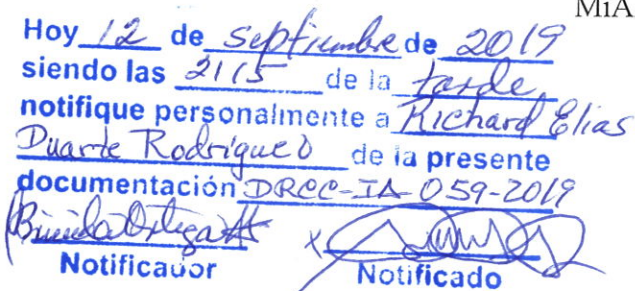 MiA
Hoy 12 de septiembre de 2019
siendo las 2:15 de la tarde
notifique personalmente a Richard Elias
Duarte Rodriguez de la presente
documentación DRCC-IA-059-2019
Ortega
X
Notificador Notificado